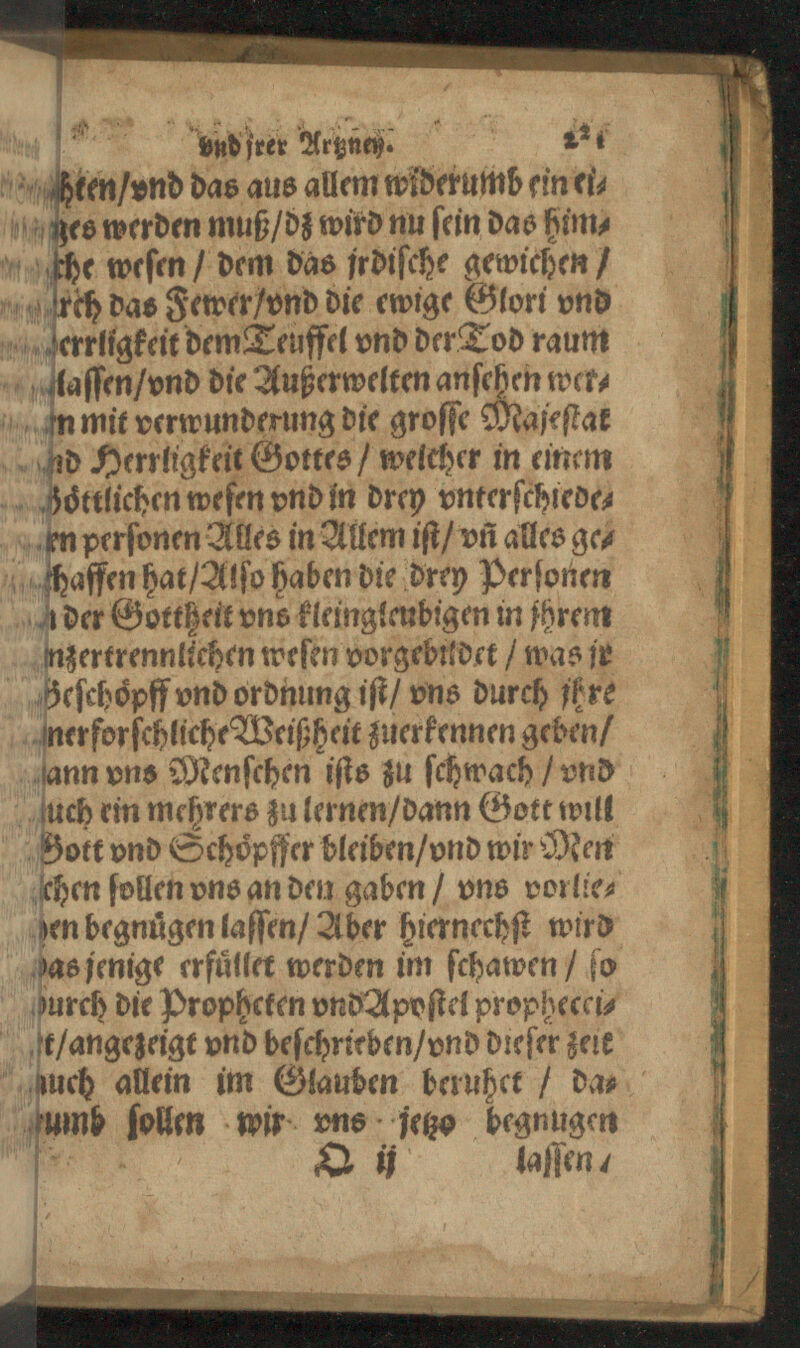 vnd jrer Artzney. 221
hten/vnd das aus allem widerumb ein ei⸗
ges werden muß/dz wird nu ſein das him⸗
che weſen / dem das jrdiſche gewichen /
rch das Fewer/vnd die ewige Glori vnd
errligkeit dem Teuffel vnd der Tod raum
laſſen/vnd die Außerwelten anſehen wer⸗
n mit verwunderung die groſſe Majeſtat
nd Herrligkeit Gottes / welcher in einem
Göttlichen weſen vnd in drey vnterſchiede⸗
en perſonen Alles in Allem iſt/ vñ alles ge⸗
haffen hat/Alſo haben die drey Perſonen
n der Gottheit vns kleingleubigen in jhrem
nzertrennlichen weſen vorgebildet / was jr
Geſchöpff vnd ordnung iſt/ vns durch jhre
nerforſchliche Weißheit zuerkennen geben/
ann vns Menſchen iſts zu ſchwach / vnd
uch ein mehrers zu lernen/dann Gott will
Gott vnd Schöpffer bleiben/vnd wir Men
ſchen ſollen vns an den gaben / vns vorlie⸗
hen begnügen laſſen/ Aber hiernechſt wird
das jenige erfüllet werden im ſchawen / ſo
durch die Propheten vnd Apoſtel prophecei⸗
t/angezeigt vnd beſchrieben/vnd dieſer zeit
auch allein im Glauben beruhet / da⸗
rumb ſollen wir vns jetzo begnugen
O ij laſſen/